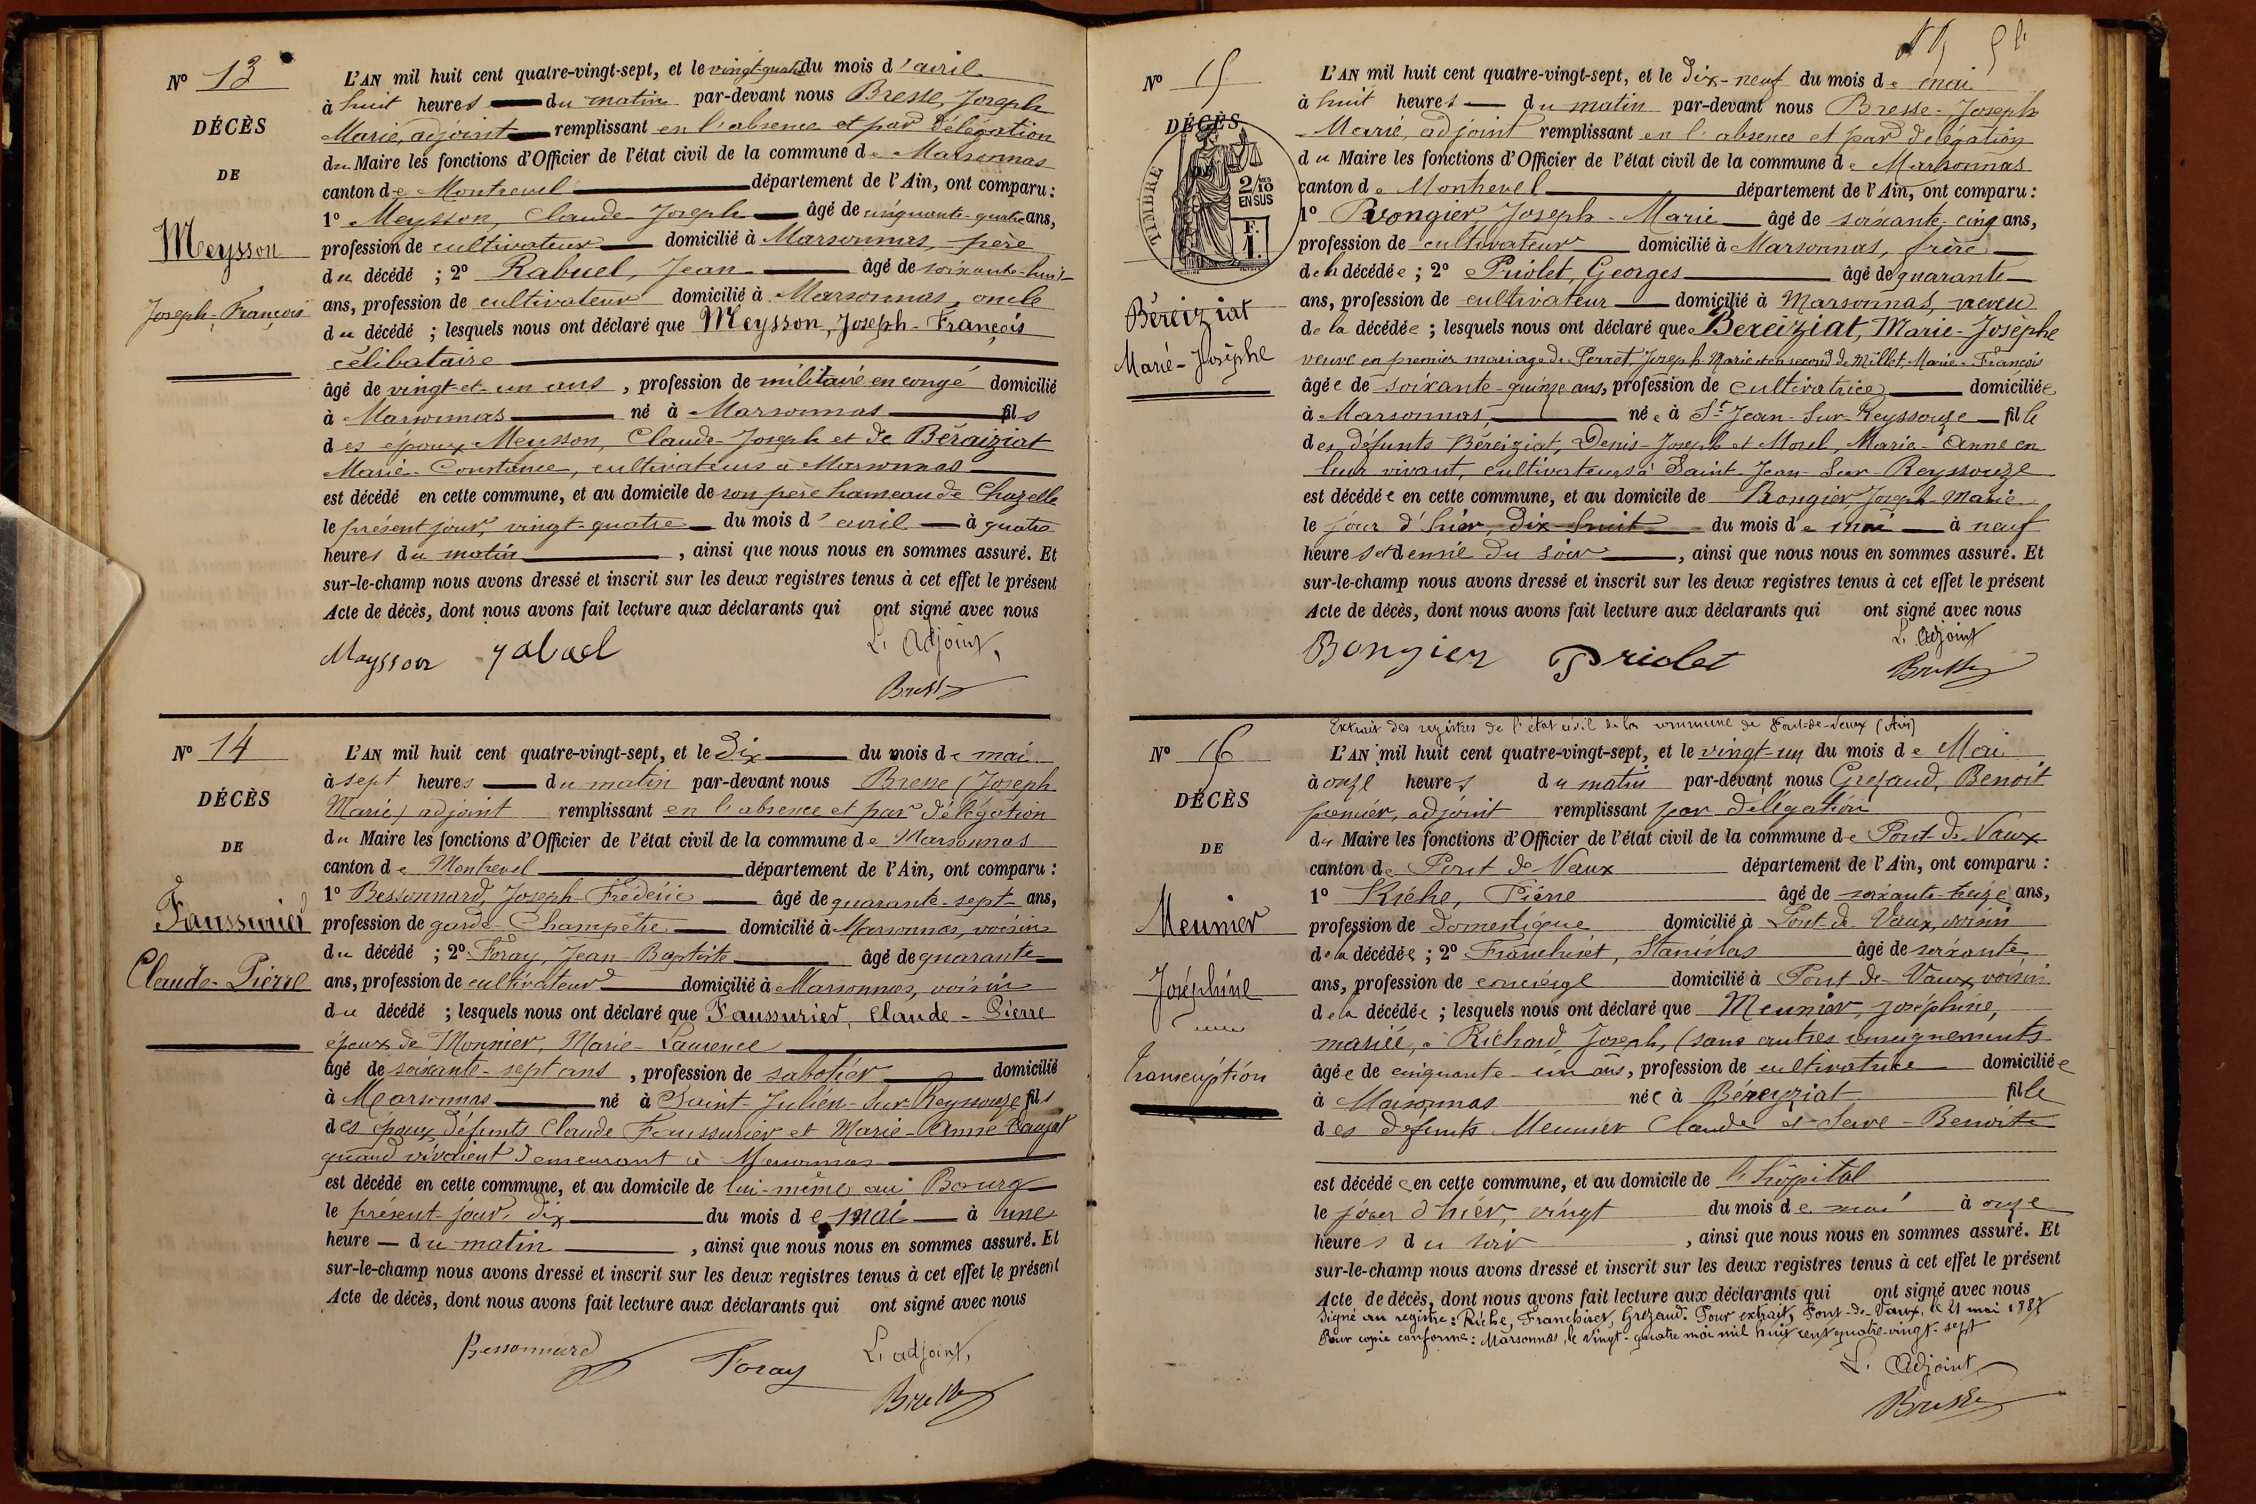 N° 13
DÉCÈS
DE
Meysson
Joseph-François
L'AN mil huit cent quatre-vingt-sept, et le vingt-quatre du mois d'avril
à huit heures du matin par-devant nous Bresse, Joseph
Marie, adjoint remplissant en l'absence et par délégation
du Maire les fonctions d'Officier de l'état civil de la commune de Marsonnas
canton de Montrevel département de l'Ain, ont comparu :
1° Meysson, Claude-Joseph âgé de cinquante-quatre ans,
profession de cultivateur domicilié à Marsonnas, père
du décédé ; 2° Rabuel, Jean âgé de soixante-huit
ans, profession de cultivateur domicilié à Marsonnas, oncle
du décédé ; lesquels nous ont déclaré que Meysson, Joseph-François
célibataire
âgé de vingt-et-un ans, profession de militaire en congé domicilié
à Marsonnas né à Marsonnas fils
des époux Meysson, Claude-Joseph et de Béraiziat
Marie-Constance, cultivateurs à Marsonnas
est décédé en cette commune, et au domicile de son père hameau de Chazelle
le présent jour, vingt-quatre du mois d'avril à quatre
heures du matin, ainsi que nous nous en sommes assuré. Et
sur-le-champ nous avons dressé et inscrit sur les deux registres tenus à cet effet le présent
Acte de décès, dont nous avons fait lecture aux déclarants qui ont signé avec nous
Meysson Rabuel L'Adjoint,
Bresse
N° 14
DÉCÈS
DE
Faussurier
Claude-Pierre
L'AN mil huit cent quatre-vingt-sept, et le dix du mois de mai
à sept heures du matin par-devant nous Bresse (Joseph
Marie) adjoint remplissant en l'absence et par délégation
du Maire les fonctions d'Officier de l'état civil de la commune de Marsonnas
canton de Montrevel département de l'Ain, ont comparu :
1° Bessonnard, Joseph-Frédéric âgé de quarante-sept ans,
profession de garde-Champêtre domicilié à Marsonnas, voisin
du décédé ; 2° Foray, Jean-Baptiste âgé de quarante
ans, profession de cultivateur domicilié à Marsonnas, voisin
du décédé ; lesquels nous ont déclaré que Faussurier, Claude-Pierre
époux de Monnier, Marie-Laurence
âgé de soixante-sept ans, profession de sabotier domicilié
à Marsonnas né à Saint-Julien-sur-Reyssouze fils
des époux défunts Claude Faussurier et Marie-Anne
quand vivaient demeurant à Marsonnas
est décédé en cette commune, et au domicile de lui-même au Bourg
le présent jour, dix du mois de mai à une
heure du matin, ainsi que nous nous en sommes assuré. Et
sur-le-champ nous avons dressé et inscrit sur les deux registres tenus à cet effet le présent
Acte de décès, dont nous avons fait lecture aux déclarants qui ont signé avec nous
Bessonnard Foray L'adjoint,
Bresse
N° 15
DÉCÈS
TIMBRE
2/10
EN SUS
F.
1.
Béreiziat
Marie-Josèphe
L'AN mil huit cent quatre-vingt-sept, et le dix-neuf du mois de mai
à huit heures du matin par-devant nous Bresse-Joseph
Marie, adjoint remplissant en l'absence et par délégation
du Maire les fonctions d'Officier de l'état civil de la commune de Marsonnas
canton de Montrevel département de l'Ain, ont comparu :
1° Rongier, Joseph-Marie âgé de soixante-cinq ans,
profession de cultivateur domicilié à Marsonnas, frère
de la décédée ; 2° Priolet, Georges âgé de quarante
ans, profession de cultivateur domicilié à Marsonnas, neveu
de la décédée ; lesquels nous ont déclaré que Bereiziat, Marie-Josèphe
veuve en premier mariage de Perret Joseph-Marie et en second de Millet Marie-François
âgée de soixante-quinze ans, profession de cultivatrice domiciliée
à Marsonnas, née à St-Jean-sur-Reyssouze fille
des défunts Béreiziat, Denis-Joseph et Morel, Marie-Anne en
leur vivant, cultivateurs à Saint-Jean-sur-Reyssouze
est décédée en cette commune, et au domicile de Rongier, Joseph-Marie
le jour d'hier, dix-huit du mois de mai à neuf
heures et demie du soir, ainsi que nous nous en sommes assuré. Et
sur-le-champ nous avons dressé et inscrit sur les deux registres tenus à cet effet le présent
Acte de décès, dont nous avons fait lecture aux déclarants qui ont signé avec nous
Rongier Priolet L'Adjoint
Bresse
Extrait des registres de l'état civil de la commune de Pont-de-Vaux (Ain)
N° 16
DÉCÈS
DE
Meunier
Joséphine
Transcription
L'AN mil huit cent quatre-vingt-sept, et le vingt-un du mois de Mai
à onze heures du matin par-devant nous Grezaud, Benoit
premier, adjoint remplissant par délégation
du Maire les fonctions d'Officier de l'état civil de la commune de Pont de Vaux
canton de Pont de Vaux département de l'Ain, ont comparu :
1° Riche, Pierre âgé de soixante-treize ans,
profession de domestique domicilié à Pont-de-Vaux, voisin
de la décédée ; 2° Franchinet, Stanislas âgé de soixante
ans, profession de concierge domicilié à Pont-de-Vaux voisin
de la décédée ; lesquels nous ont déclaré que Meunier, Joséphine,
mariée, à Richard, Joseph, (sans autres renseignements
âgée de cinquante-un ans, profession de cultivatrice domiciliée
à Marsonnas née à Béreyziat fille
des défunts Meunier Claude et Serve-Benoite
est décédée en cette commune, et au domicile de l'hôpital
le jour d'hier, vingt du mois de mai à onze
heures du soir, ainsi que nous nous en sommes assuré. Et
sur-le-champ nous avons dressé et inscrit sur les deux registres tenus à cet effet le présent
Acte de décès, dont nous avons fait lecture aux déclarants qui ont signé avec nous
Signé au registre : Riche, Franchinet, Grezaud. Pour extrait, Pont-de-Vaux, le 21 mai 1887
Pour copie conforme : Marsonnas, le vingt-quatre mai mil huit cent quatre-vingt-sept
L'Adjoint,
Bresse